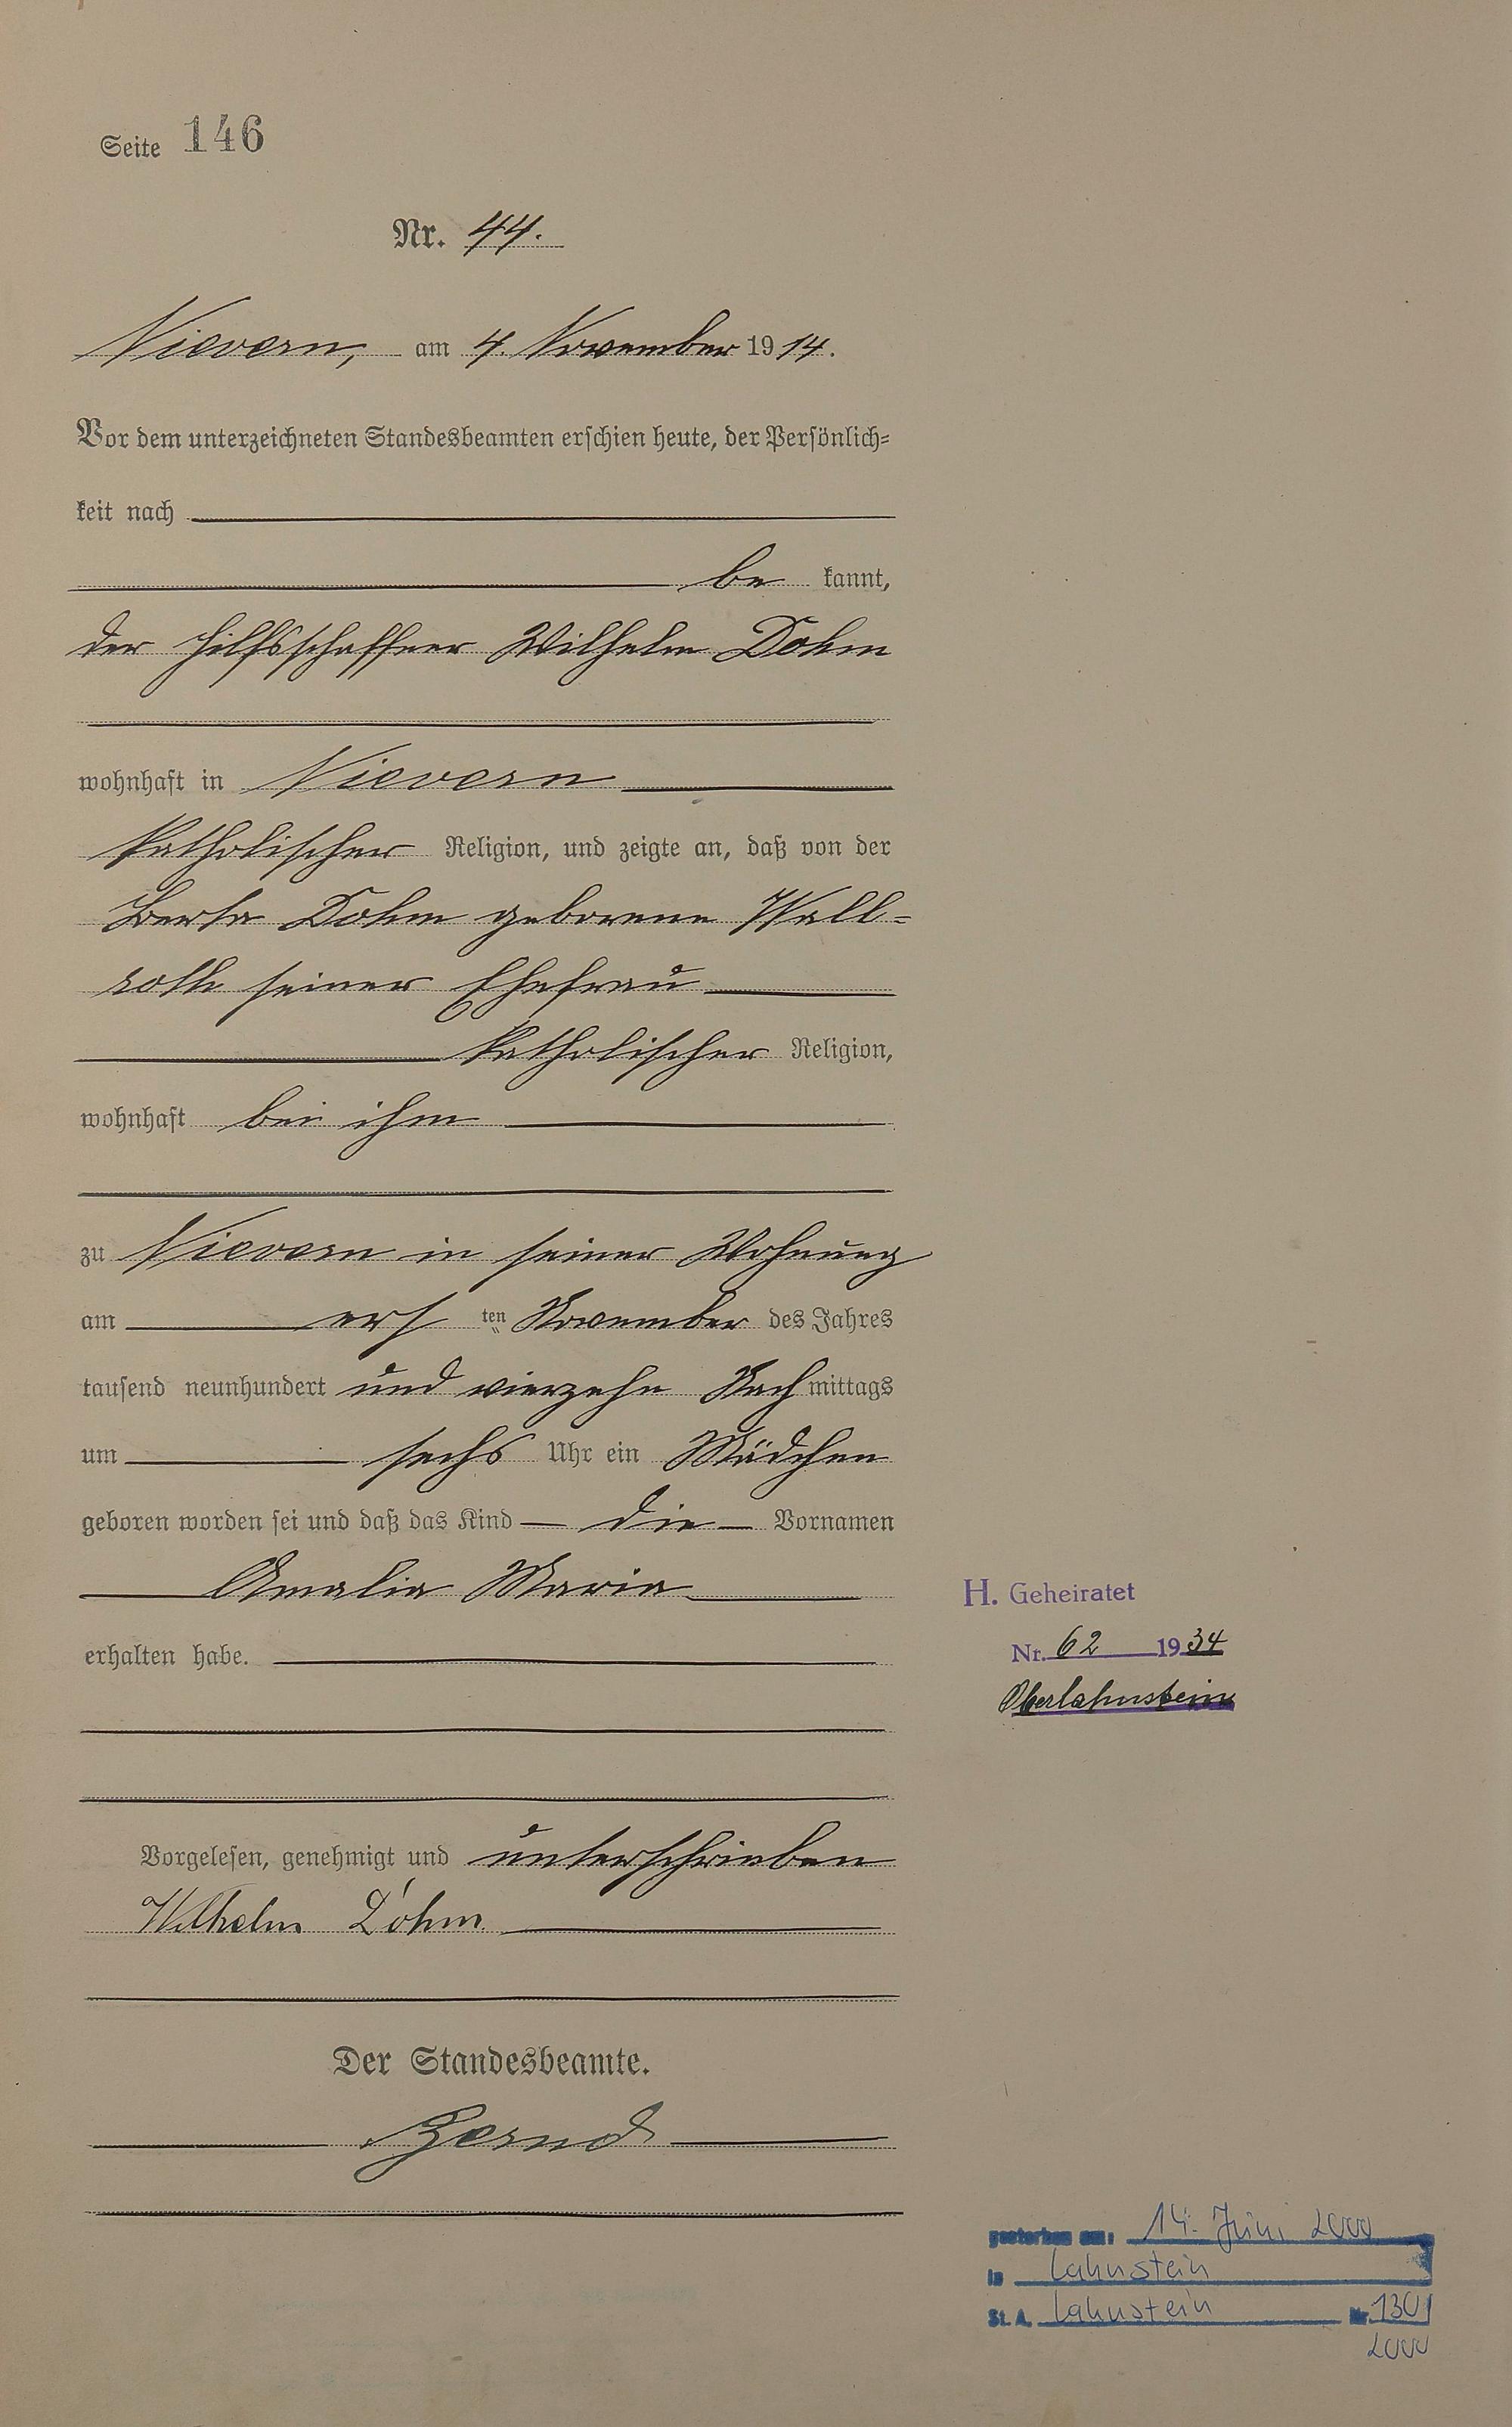 Seite 146
Nr. 44.
Nievern, am 4. November 1914.
Vor dem unterzeichneten Standesbeamten erschien heute, der Persönlich-
keit nach
be kannt,
der Hilfsschaffner Wilhelm Dohm
wohnhaft in Nievern
katholischer Religion, und zeigte an, daß von der
Berta Dohm geborene Wall-
roth seiner Ehefrau
katholischer Religion,
wohnhaft bei ihm
zu Nievern in seiner Wohnung
am ersten November des Jahres
tausend neunhundert und vierzehn Nachmittags
um sechs Uhr ein Mädchen
geboren worden sei und daß das Kind die Vornamen
Amalia Maria
erhalten habe.
H. Geheiratet
Nr. 62 1934
Oberlahnstein
Vorgelesen, genehmigt und unterschrieben
Wilhelm Dohm
Der Standesbeamte.
gestorben am: 14. Juni 2000
in Lahnstein
St. A. Lahnstein Nr. 130/
2000